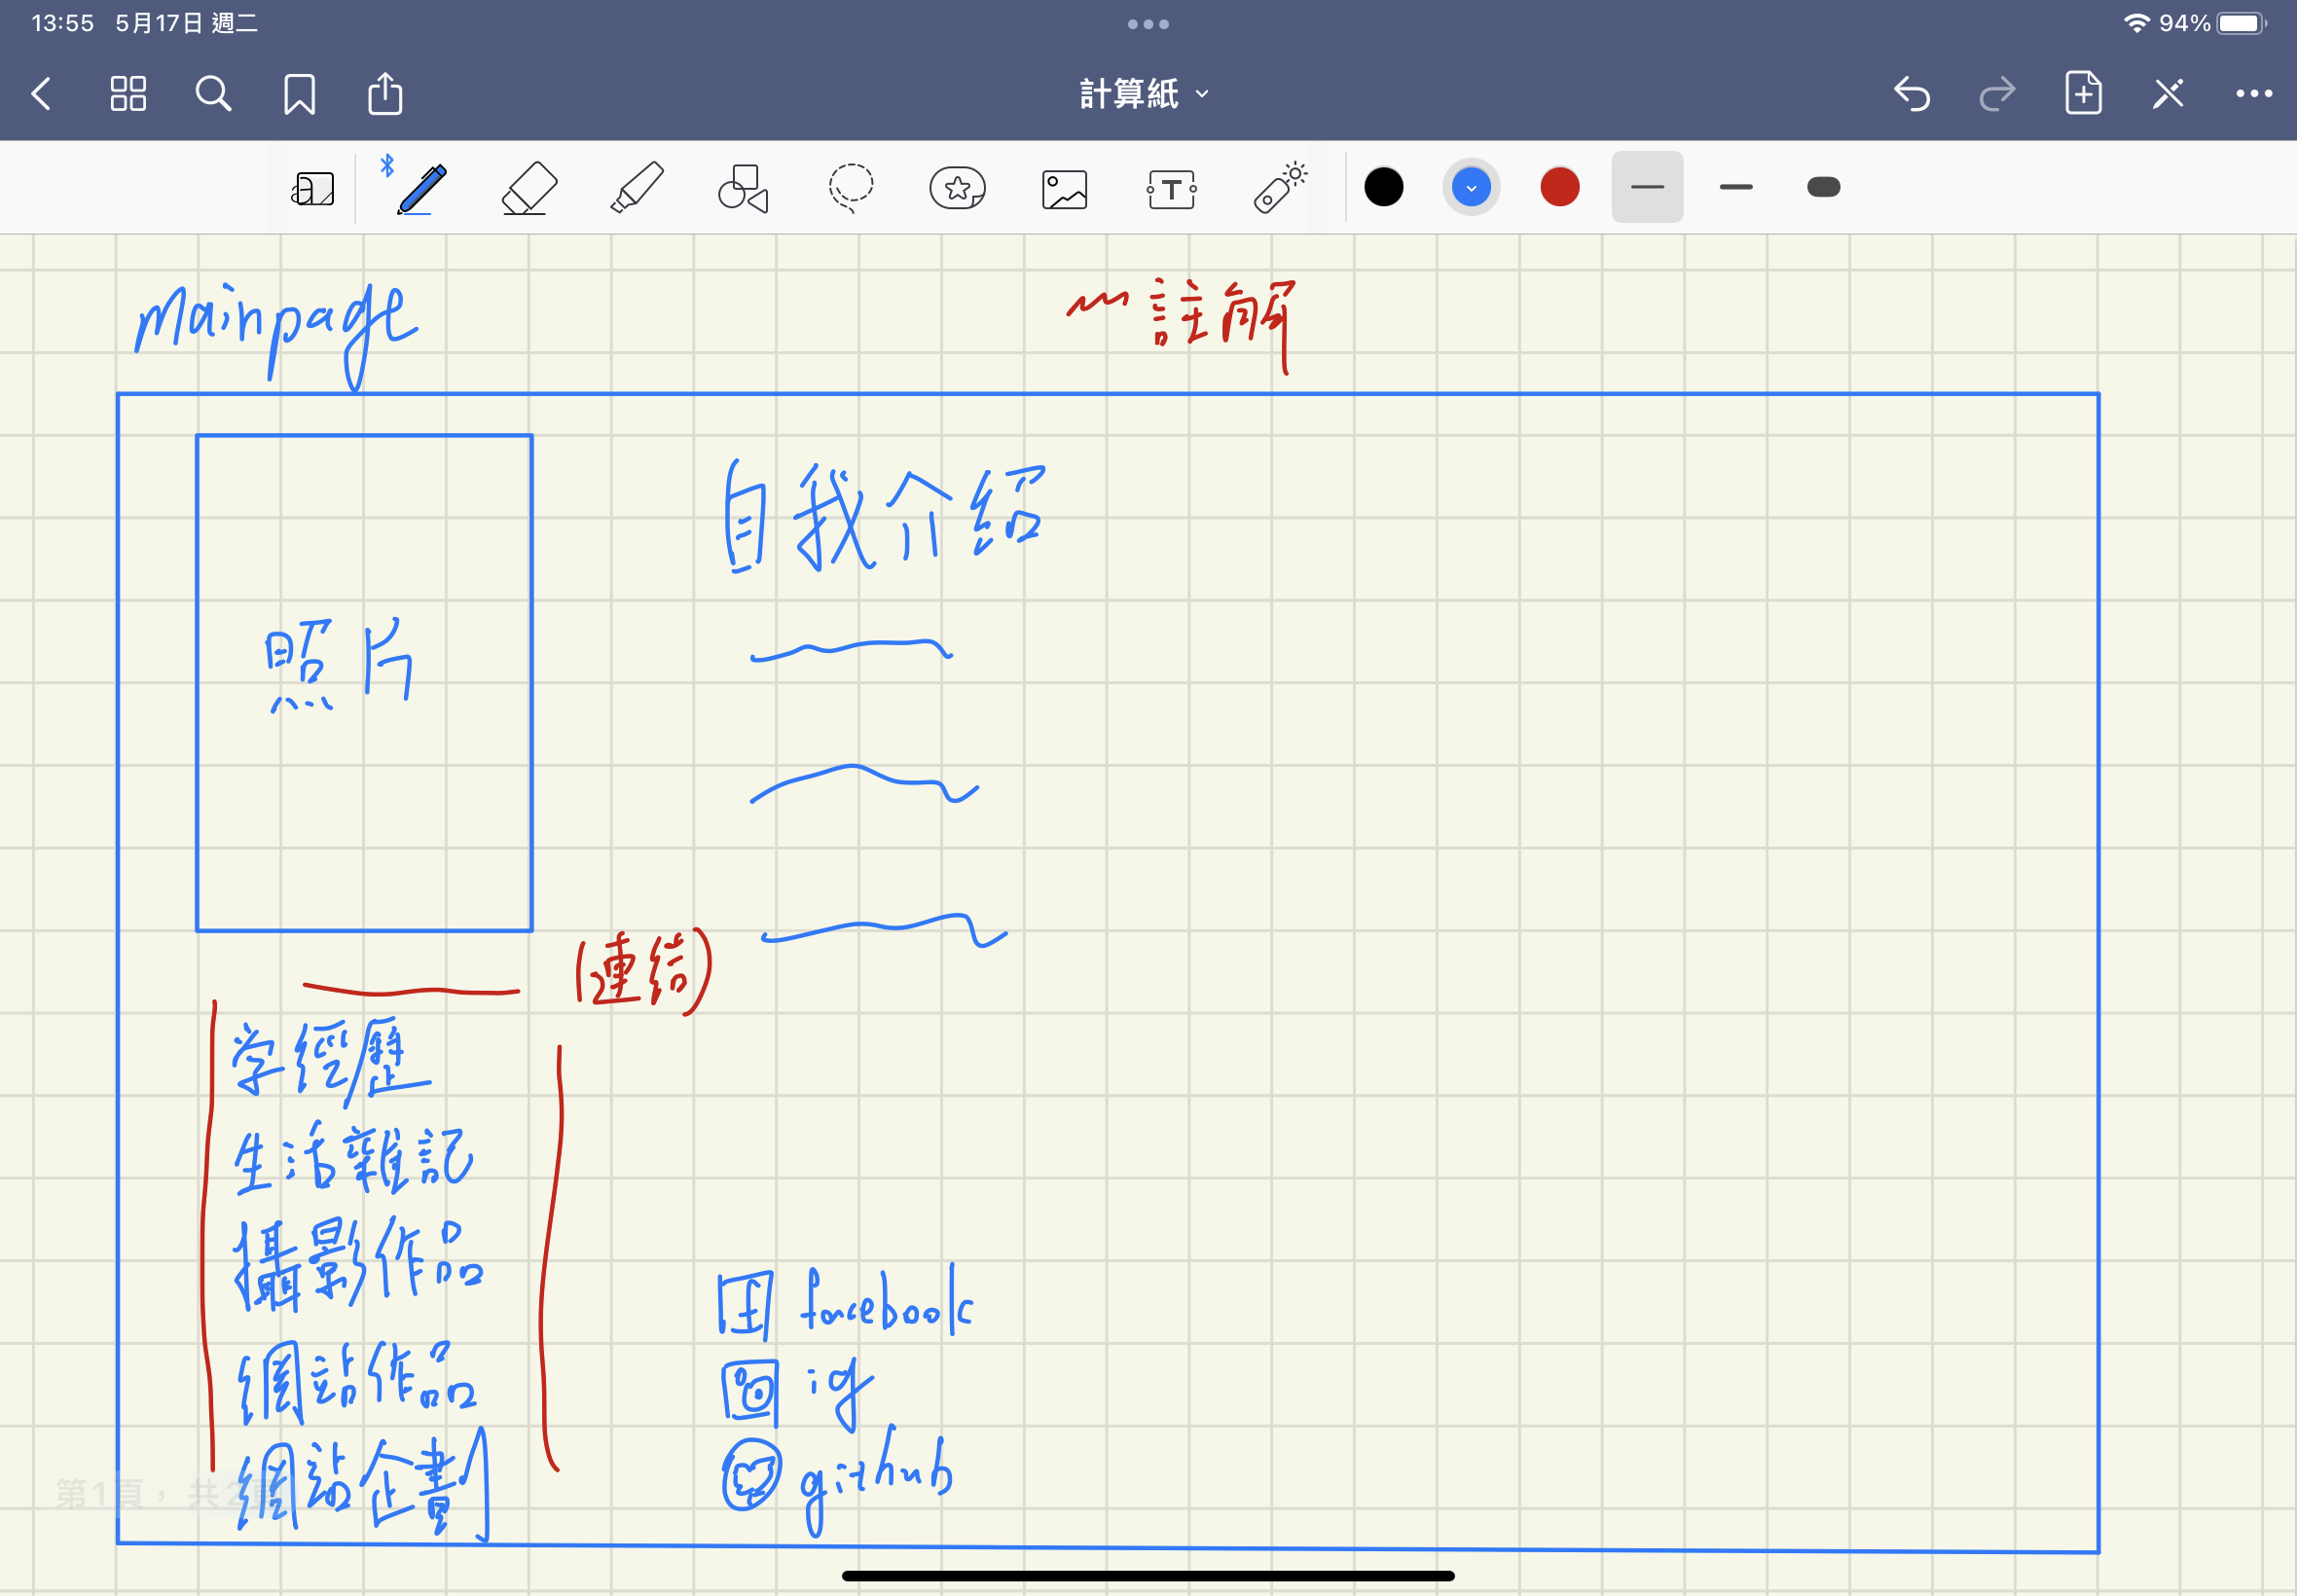 13:55 5月17日 週二
94%
計算紙
T
Mainpage
註解
自我介紹
照片
(連結)
学經歷
生活雜記
攝影作品
網站作品
網站企畫
facebook
ig
github
第1頁，共2頁